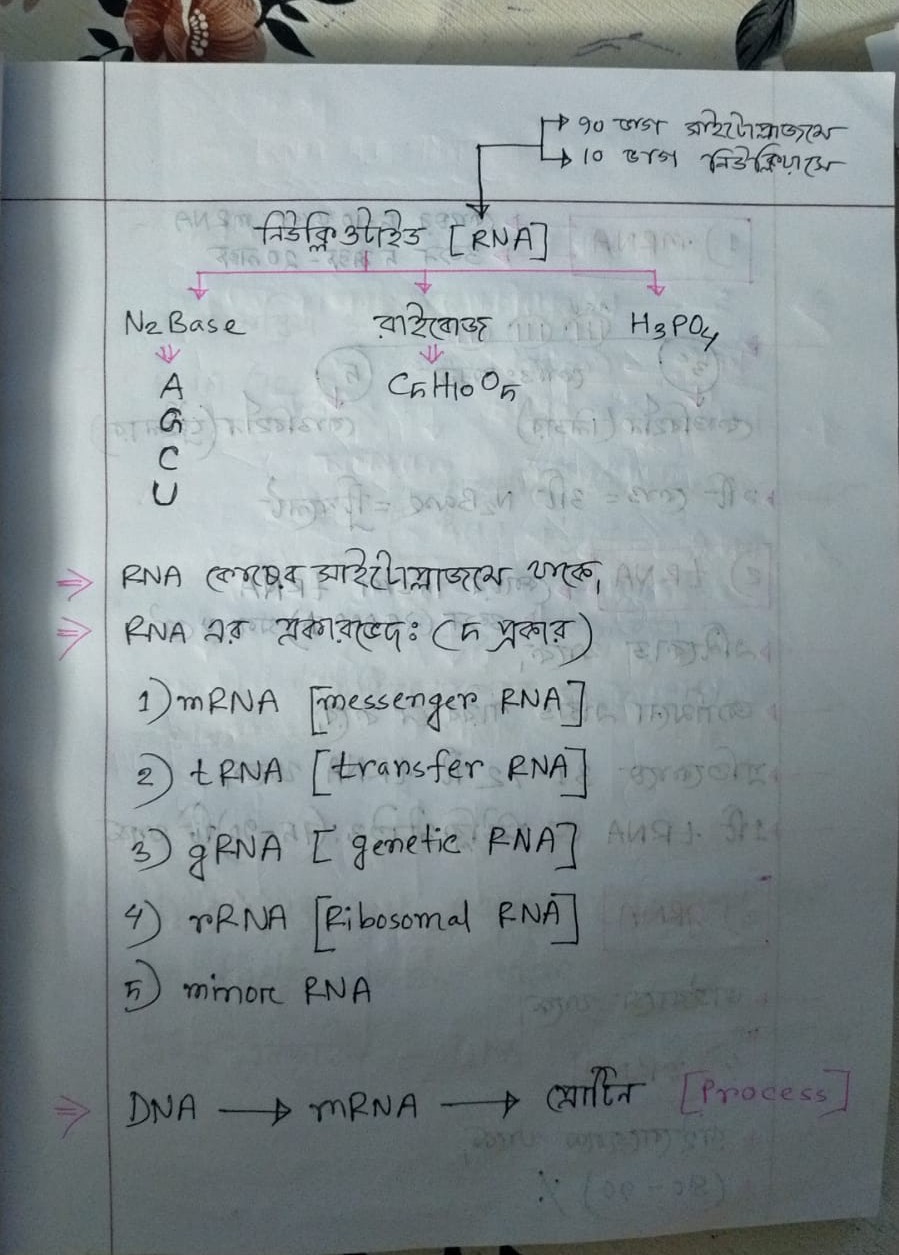 90 ভাগ সাইটোপ্লাজমে
10 ভাগ নিউক্লিয়াসে
নিউক্লিওটাইড [RNA]
N2 Base রাইবোজ H3PO4
A C5H10O5
G
C
U
⇒ RNA কোষের সাইটোপ্লাজমে থাকে,
⇒ RNA এর প্রকারভেদঃ (5 প্রকার)
1) mRNA [messenger RNA]
2) tRNA [transfer RNA]
3) gRNA [genetic RNA]
4) rRNA [Ribosomal RNA]
5) minor RNA
⇒ DNA → mRNA → প্রোটিন [Process]